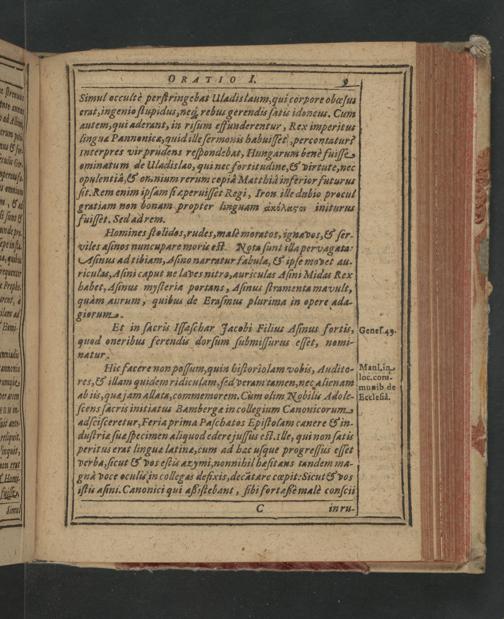 ORATIO I. 9
Simul occultè perstringebas Uladislaum, qui corpore obœsus
erat, ingenio stupidus, neq; rebus gerendis satis idoneus. Cum
autem, qui aderant, in risum effunderentur, Rex imperitus
linguæ Pannonicæ, quid ille sermonis habuisset, percontatur?
Interpres vir prudens respondebat, Hungarum benè fuisse
ominatum de Uladislao, qui nec fortitudine, & virtute, nec
opulentiâ, & omnium rerum copiâ Matthiâ inferior futurus
sit. Rem enim ipsam si aperuisset Regi, Iron ille dubio procul
gratiam non bonam propter linguam ἀκόλαςον initurus
fuisset. Sed ad rem.
Homines stolidos, rudes, malè moratos, ignavos, & ser-
viles asinos nuncupare moris est. Nota sunt illa pervagata:
Asinus ad tibiam, Asino narratur fabula, & ipse movet au-
riculas, Asini caput ne laves nitro, auriculas Asini Midas Rex
habet, Asinus mysteria portans, Asinus stramenta mavult,
quàm aurum, quibus de Erasmus plurima in opere ada-
giorum.
Et in sacris Issaschar Jacobi Filius Asinus fortis,
quod oneribus ferendis dorsum submissurus esset, nomi-
natur.
Genes. 49.
Hic facere non possum, quin historiolam vobis, Audito-
res, & illam quidem ridiculam, sed veram tamen, nec alienam
ab iis, quæ jam allata, commemorem. Cum olim Nobilis Adole-
scens sacris initiatus Bambergæ in collegium Canonicorum
adscisceretur, Feria prima Paschatos Epistolam canere & in-
dustriæ suæ specimen aliquod edere jussus est. Ille, qui non satis
peritus erat linguæ latinæ, cum ad hæc usque progressus esset
verba, sicut & vos estis azymi, nonnihil hæsitans tandem ma-
gnâ voce oculis in collegas defixis, decâtare cœpit: Sicut & vos
istis asini. Canonici qui assistebant, sibi fortasse malè conscii
Manl. in
loc. com-
munib. de
Ecclesiâ.
C in ru-